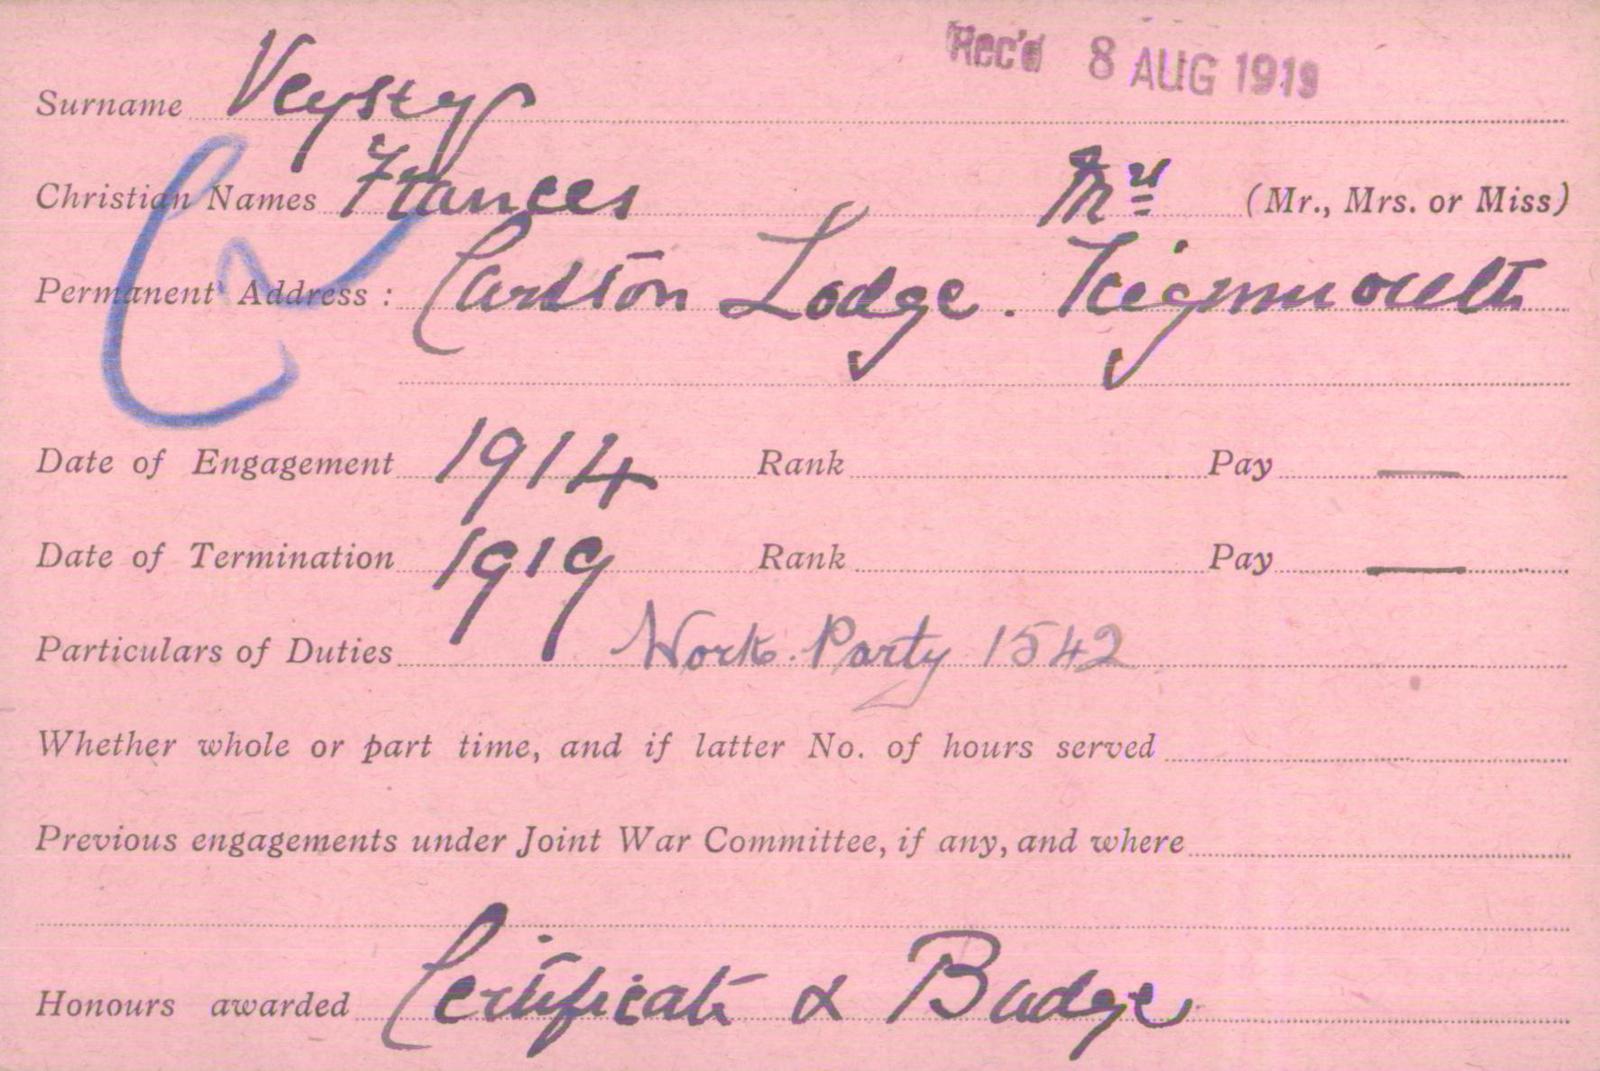 Rec'd 8 AUG 1919
Surname Veysey
Christian Names Frances Mrs (Mr., Mrs. or Miss)
Permanent Address: Carlton Lodge. Teignmouth
Date of Engagement 1914 Rank Pay —
Date of Termination 1919 Rank Pay —
Particulars of Duties Work Party 1542
Whether whole or part time, and if latter No. of hours served
Previous engagements under Joint War Committee, if any, and where
Honours awarded Certificate & Badge